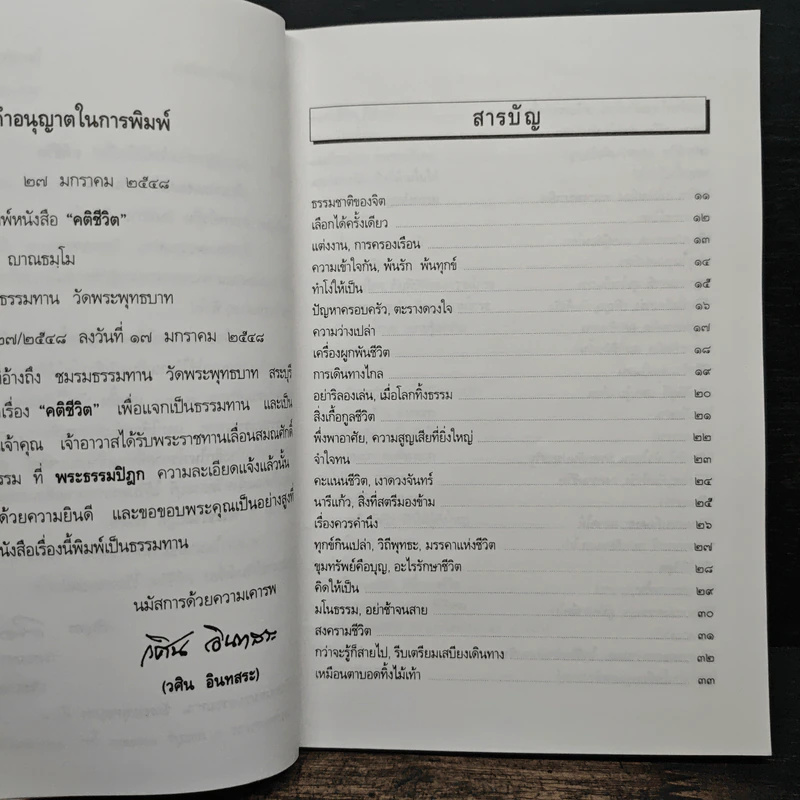 คำอนุญาตในการพิมพ์
๒๗ มกราคม ๒๕๔๘
พ์หนังสือ “คติชีวิต”
ญาณธมฺโม
ธรรมทาน วัดพระพุทธบาท
๒๗/๒๕๔๘ ลงวันที่ ๑๗ มกราคม ๒๕๔๘
อ้างถึง ชมรมธรรมทาน วัดพระพุทธบาท สระบุรี
เรื่อง “คติชีวิต” เพื่อแจกเป็นธรรมทาน และเป็น
เจ้าคุณ เจ้าอาวาสได้รับพระราชทานเลื่อนสมณศักดิ์
รรม ที่ พระธรรมปิฎก ความละเอียดแจ้งแล้วนั้น
ด้วยความยินดี และขอขอบพระคุณเป็นอย่างสูงที่
นังสือเรื่องนี้พิมพ์เป็นธรรมทาน
นมัสการด้วยความเคารพ
วศิน อินทสระ
(วศิน อินทสระ)
สารบัญ
ธรรมชาติของจิต ๑๑
เลือกได้ครั้งเดียว ๑๒
แต่งงาน, การครองเรือน ๑๓
ความเข้าใจกัน, พ้นรัก พ้นทุกข์ ๑๔
ทำไงให้เป็น ๑๕
ปัญหาครอบครัว, ตะรางดวงใจ ๑๖
ความว่างเปล่า ๑๗
เครื่องผูกพันชีวิต ๑๘
การเดินทางไกล ๑๙
อย่าริลองเล่น, เมื่อโลกทิ้งธรรม ๒๐
สิ่งเกื้อกูลชีวิต ๒๑
พึ่งพาอาศัย, ความสูญเสียที่ยิ่งใหญ่ ๒๒
จำใจทน ๒๓
คะแนนชีวิต, เงาดวงจันทร์ ๒๔
นารีแก้ว, สิ่งที่สตรีมองข้าม ๒๕
เรื่องควรคำนึง ๒๖
ทุกข์กินเปล่า, วิถีพุทธะ, มรรคาแห่งชีวิต ๒๗
ขุมทรัพย์คือบุญ, อะไรรักษาชีวิต ๒๘
คิดให้เป็น ๒๙
มโนธรรม, อย่าช้าจนสาย ๓๐
สงครามชีวิต ๓๑
กว่าจะรู้ก็สายไป, รีบเตรียมเสบียงเดินทาง ๓๒
เหมือนตาบอดทิ้งไม้เท้า ๓๓